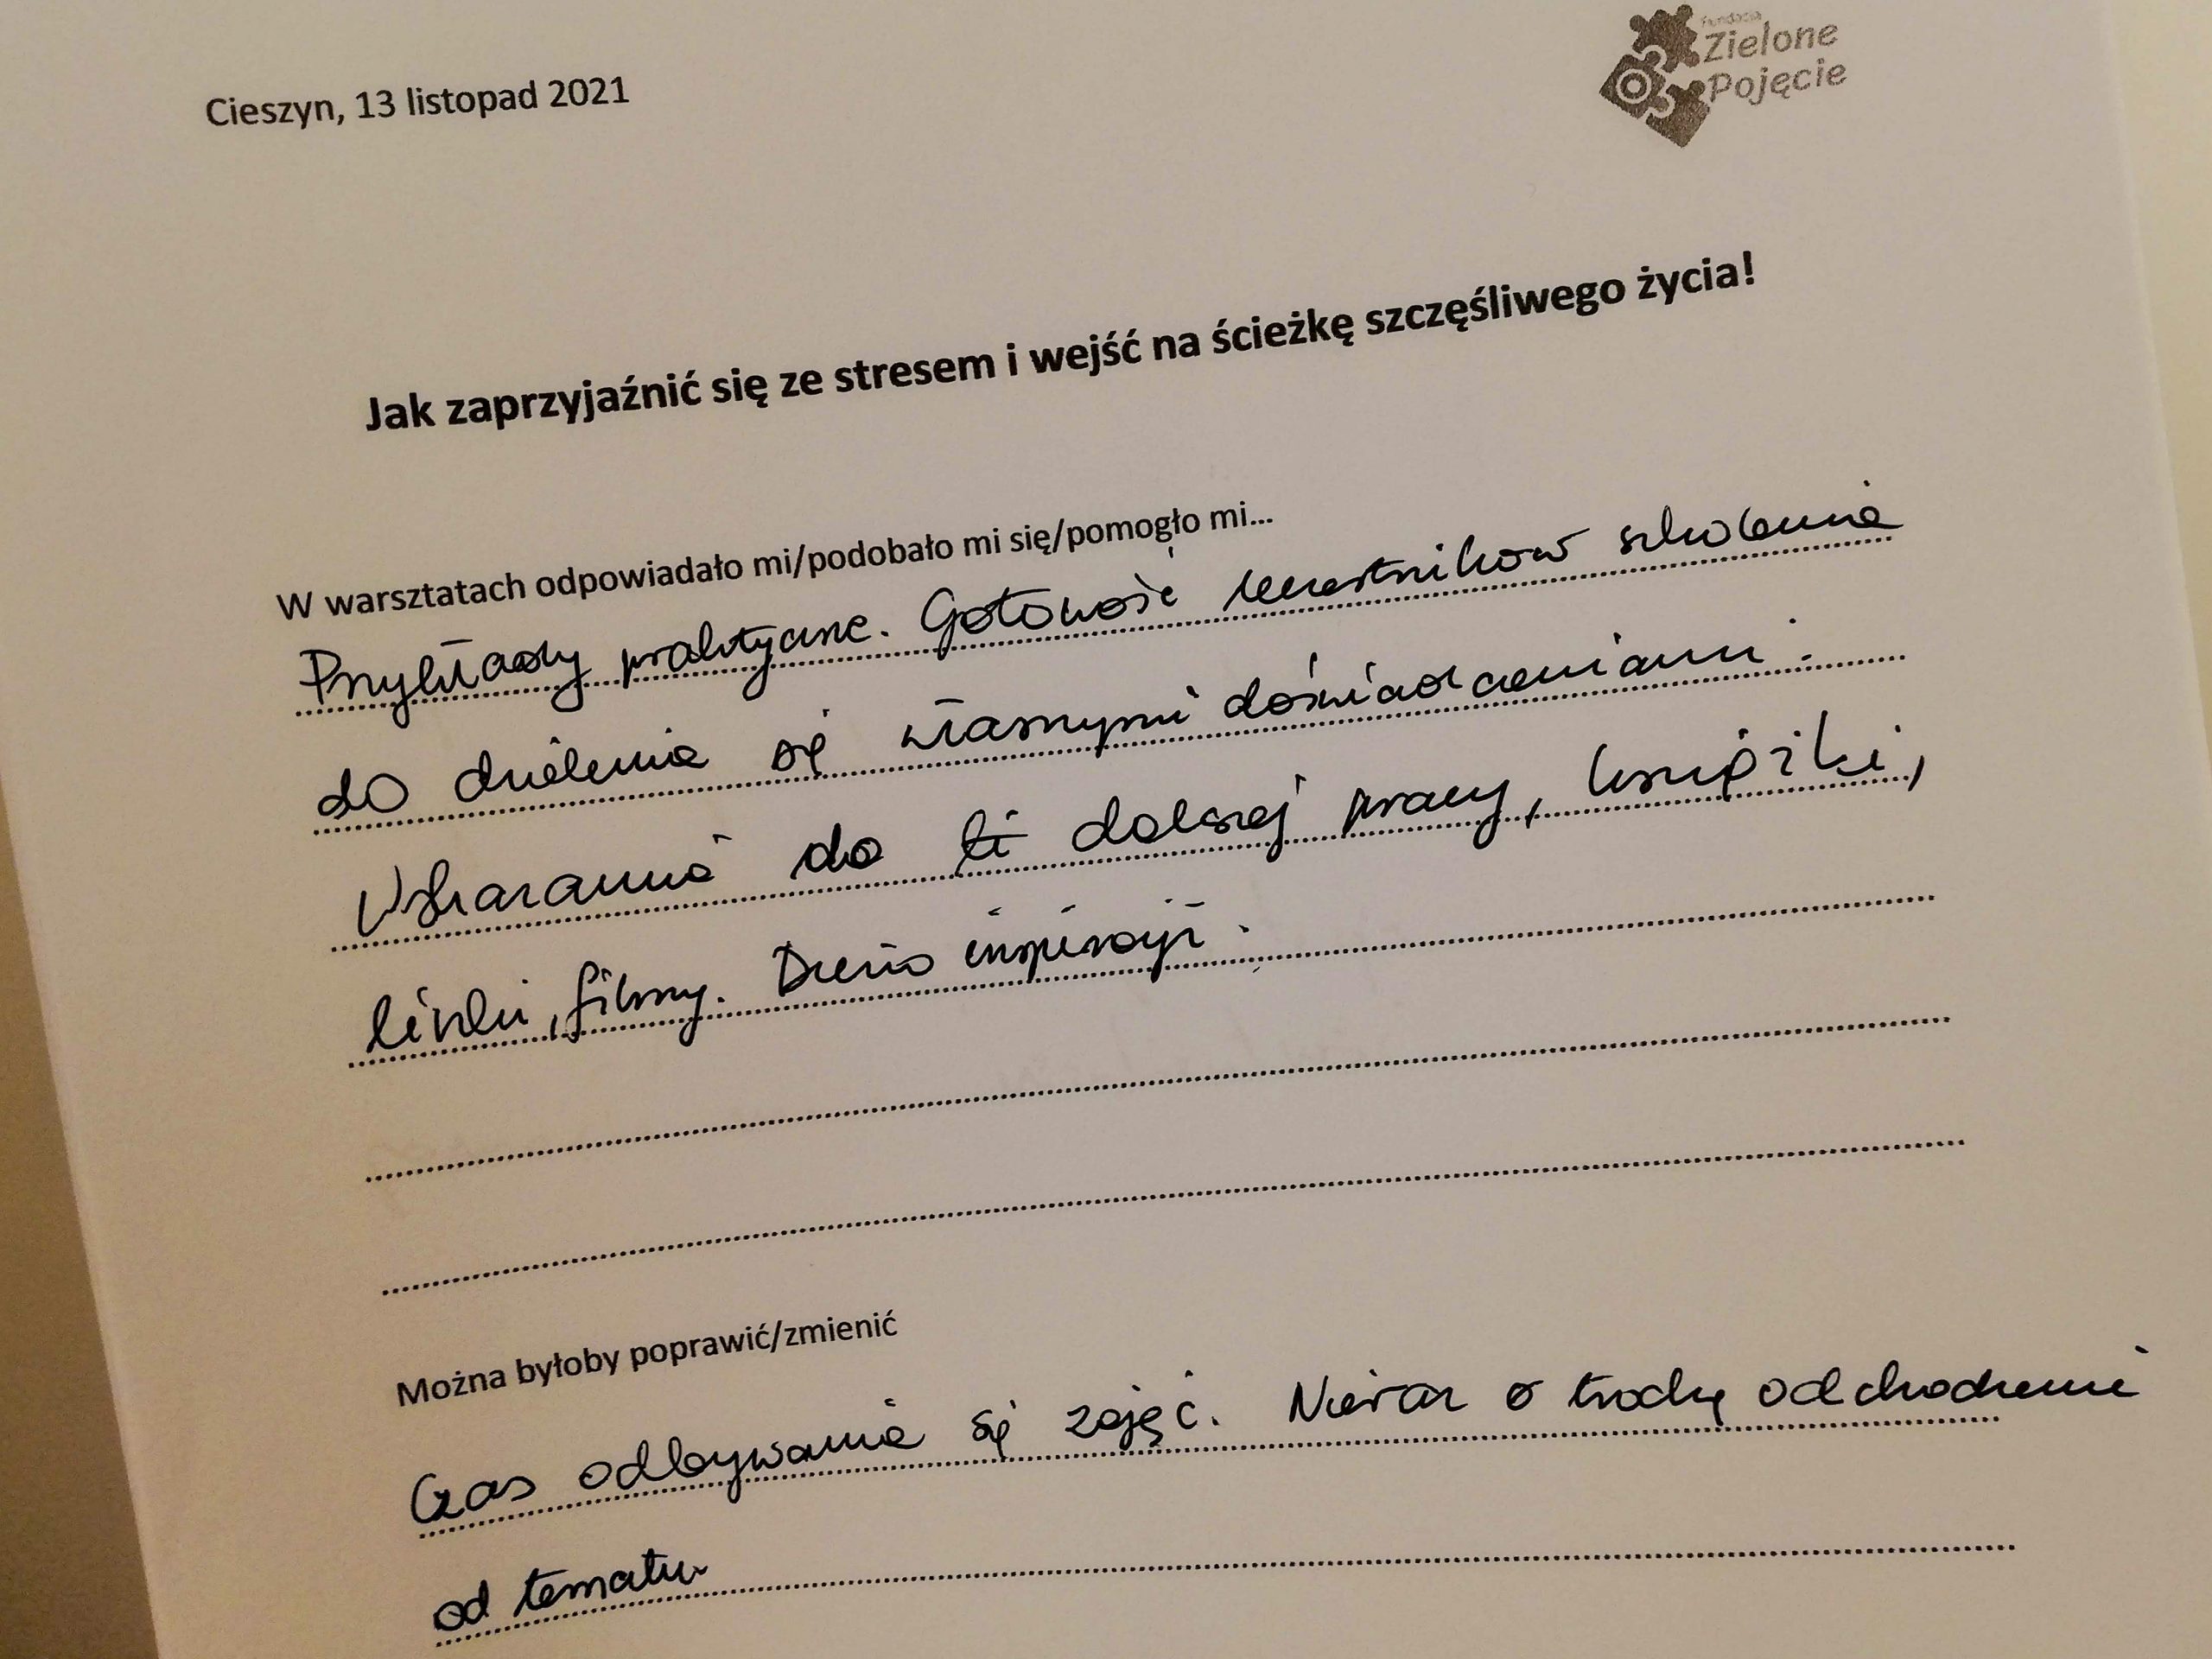 Fundacja
Zielone
Pojęcie
Cieszyn, 13 listopad 2021
Jak zaprzyjaźnić się ze stresem i wejść na ścieżkę szczęśliwego życia!
W warsztatach odpowiadało mi/podobało mi się/pomogło mi...
Przykłady praktyczne. Gotowość uczestników szkolenia
do dzielenia się własnymi doświadczeniami.
Wskazania do dalszej pracy, książki,
linki, filmy. Dużo inspiracji.
Można byłoby poprawić/zmienić
Czas odbywania się zajęć. Nieraz trochę odchodzenie
od tematu